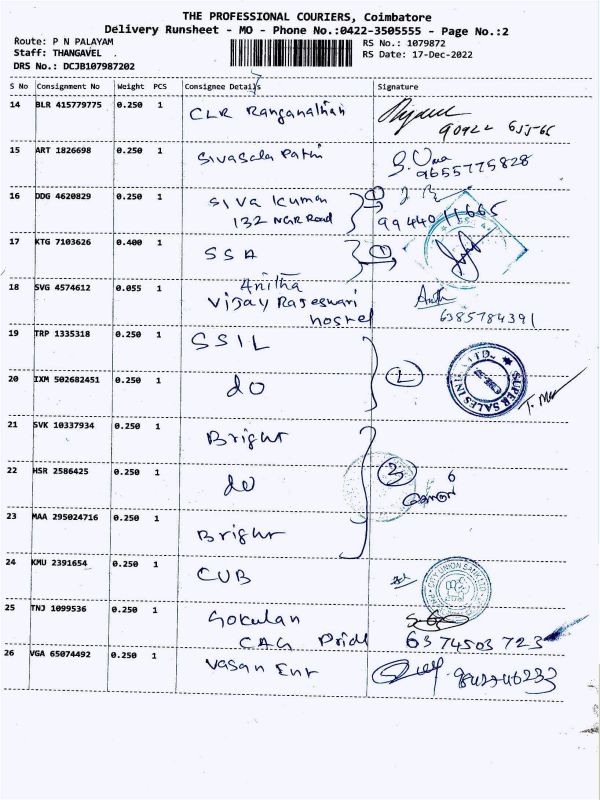 THE PROFESSIONAL COURIERS, Coimbatore
Delivery Runsheet - MO - Phone No.:0422-3505555 - Page No.:2
Route: P N PALAYAM
RS No.: 1079872
Staff: THANGAVEL
RS Date: 17-Dec-2022
DRS No.: DCJB107987202
S No Consignment No Weight PCS Consignee Details Signature
14 BLR 415779775 0.250 1 CLR Ranganathan
15 ART 1826698 0.250 1 Sivasala Pathi S. Uma
9655775828
16 DDG 4620829 0.250 1 Siva Kumar 1
132 NGR Road 9944011665
17 KTG 7103626 0.400 1 SSA 1
18 SVG 4574612 0.055 1 Anitha
Vijay Rajeswari
hostel
6385784391
19 TRP 1335318 0.250 1 SSIL
20 IXM 502682451 0.250 1 do 2
SUPER SALES IN LTD.
21 SVK 10337934 0.250 1 Bright
22 HSR 2586425 0.250 1 do 3
23 MAA 295024716 0.250 1 Bright
24 KMU 2391654 0.250 1 CUB
CITY UNION BANK LTD
25 TNJ 1099536 0.250 1 Gokulan
CAG Pride 6374503723
26 VGA 65074492 0.250 1 Vasan Ent